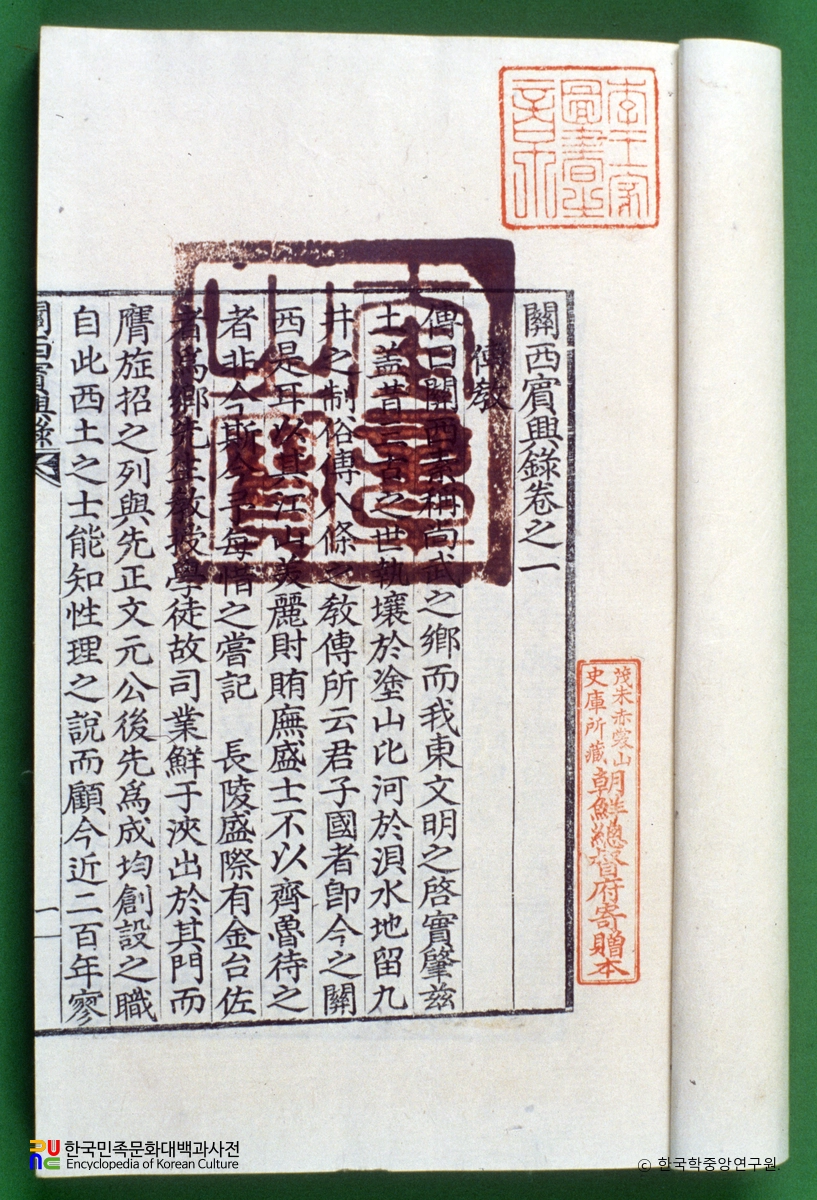 李王家
圖書之
章
奎章
之寶
茂朱赤裳山
史庫所藏
朝鮮總督府寄贈本
關西賓興錄卷之一
傳敎
傳曰關西素稱尙武之鄕而我東文明之啓實肇玆
土盖昔三古之世執壤於塗山比河於浿水地留九
井之制俗傳八條之敎傳所云君子國者卽今之關
西是耳以其江山美麗財賄廡盛士不以齊魯待之
者非今斯今予每惜之嘗記 長陵盛際有金台佐
者爲鄕先生敎授學徒故司業鮮于浹出於其門而
膺旌招之列與先正文元公後先爲成均創設之職
自此西土之士能知性理之說而顧今近二百年寥
關西賓興錄
一
한국민족문화대백과사전
Encyclopedia of Korean Culture
© 한국학중앙연구원